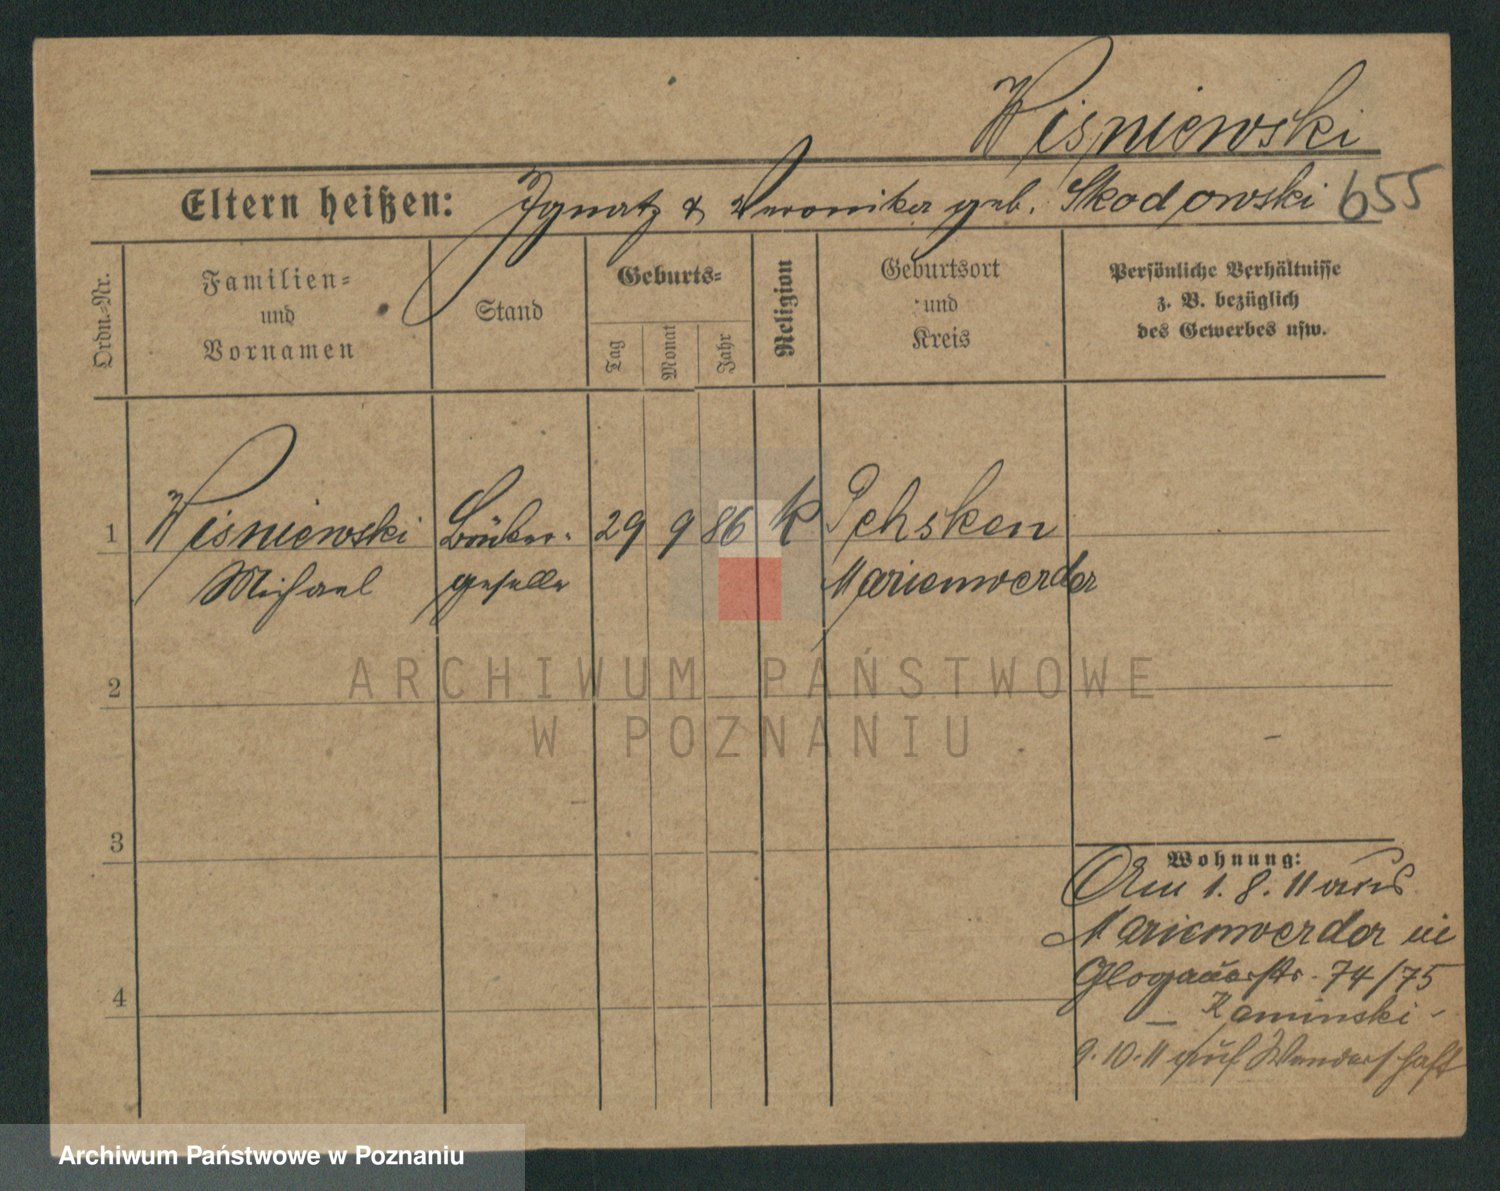 Wiśniewski
Eltern heißen: Ignatz & Veronika geb. Skodowski 655
Ordn.-Nr.
Familien-
und
Vornamen
Stand
Geburts-
Tag
Monat
Jahr
Religion
Geburtsort
und
Kreis
Persönliche Verhältnisse
z. B. bezüglich
des Gewerbes usw.
1 Wisniewski 29 9 86 k. Pehsken
Michael geselle Marienwerder
2
3
4
Wohnung:
Am 1. 8. 11 aus
Marienwerder in
Glogauerstr. 74/75
– Kaminski -
9. 10. 11 auf Wanderschaft
ARCHIWUM PAŃSTWOWE
W POZNANIU
Archiwum Państwowe w Poznaniu